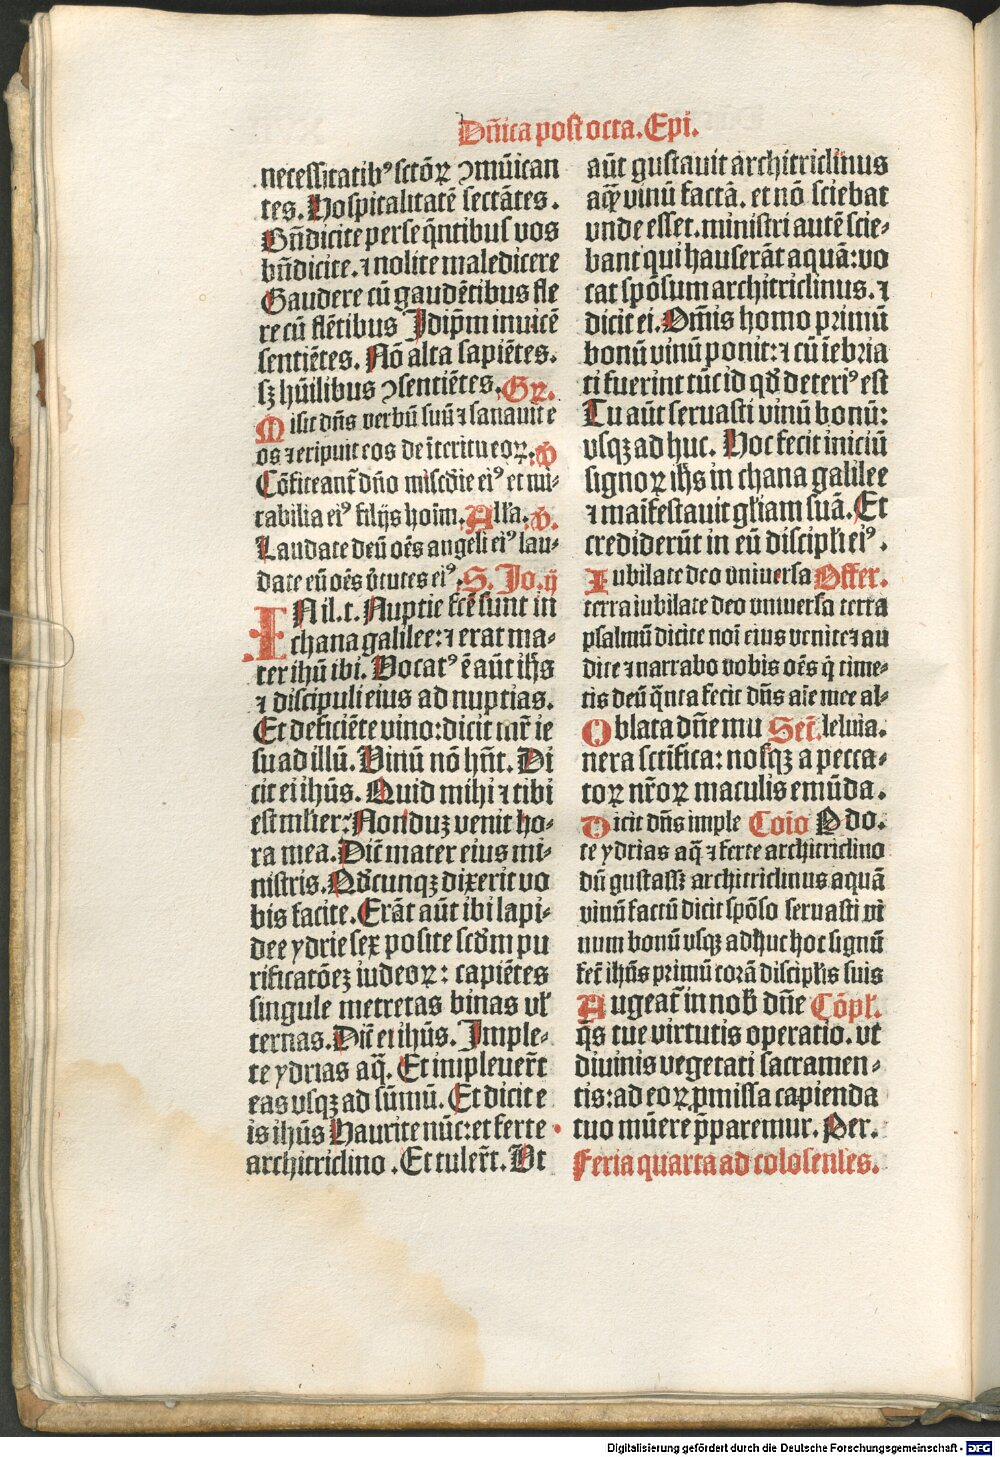 Dñica post octa. Epi.
necessitatibꝰ sctõꝝ ↄmũican
tes. Hospitalitatẽ sectãtes.
Bñdicite perseq̃ntibus vos
bñdicite. ⁊ nolite maledicere
Gaudere cũ gaudẽtibus fle
re cũ flẽtibus Idip̃m inuicẽ
sentiẽtes. Nõ alta sapiẽtes.
sꝫ hũilibus ↄsentiẽtes. Gꝝ.
Misit dñs verbũ suũ ⁊ sanauit e
os ⁊ eripuit eos de ĩteritu eoꝝ. v
Cõfiteant̃ dño miscđie eiꝰ et mi-
rabilia eiꝰ filijs hoĩm. Alła. v.
Laudate deũ oẽs angeli eiꝰ lau-
date eũ oẽs v̾tutes eiꝰ. S. Jo. ij
IN il. t. Nuptie fcẽ sunt in
chana galilee: ⁊ erat ma-
ter ihũ ibi. Vocatꝰ ẽ aũt ihs̃
⁊ discipuli eius ad nuptias.
Et deficiẽte vino: dicit mr̃ ie
su ad illũ. Vinũ nõ hñt. Di
cit ei ihũs. Quid mihi ⁊ tibi
est ml̾ier: Nonduꝫ venit ho-
ra mea. Dic̃ mater eius mi-
nistris. Qđcunqꝫ dixerit vo
bis facite. Erãt aũt ibi lapi-
dee ydrie sex posite scđm pu
rificatõeꝫ iudeoꝝ: capiẽtes
singule metretas binas vł
ternas. Dic̃ ei ihũs. Imple-
te ydrias aq̃. Et impleuer̃t
eas vsqꝫ ad sũmũ. Et dicit e
is ihũs Haurite nũc: et ferte
architriclino. Et tuler̃t. Vt
aũt gustauit architriclinus
aq̃ꝫ vinũ factã. et nõ sciebat
vnde esset. ministri autẽ scie-
bant qui hauserãt aquã: vo
cat spõsum architriclinus. ⁊
dicit ei. Om̃is homo primũ
bonũ vinũ ponit: ⁊ cũ ĩebria
ti fuerint tũc id qđ deteriꝰ est
Tu aũt seruasti vinũ bonũ:
vsqꝫ ad huc. Hoc fecit iniciũ
signoꝝ ihs̃ in chana galilee
⁊ maĩfestauit gl̾iam suã. Et
crediderũt in eũ discipłi eiꝰ.
Iubilate deo vniuersa Offer.
terra iubilate deo vniuersa terra
psalmũ dicite noĩ eius venite ⁊ au
dite ⁊ narrabo vobis oẽs q̃ time-
tis deũ q̃nta fecit dñs aĩe mee al-
Oblata dñe mu Sec̃. leluia.
nera sctĩfica: nosqꝫ a pecca-
toꝝ nr̃oꝝ maculis emũda.
Dicit dñs imple Coĩo Pdo.
te ydrias aq̃ ⁊ ferte architriclino
dũ gustassꝫ architriclinus aquã
vinũ factũ dicit spõso seruasti vi
num bonũ vsqꝫ adhuc hoc signũ
fec̃ ihũs primũ corã discipłis suis
Augeat̃ in nob̾ dñe Cõpł.
q̃s tue virtutis operatio. vt
diuinis vegetati sacramen-
tis: ad eoꝝ ꝓmissa capienda
tuo mũere p̃paremur. Per.
Feria quarta ad colosenses.
Digitalisierung gefördert durch die Deutsche Forschungsgemeinschaft - DFG